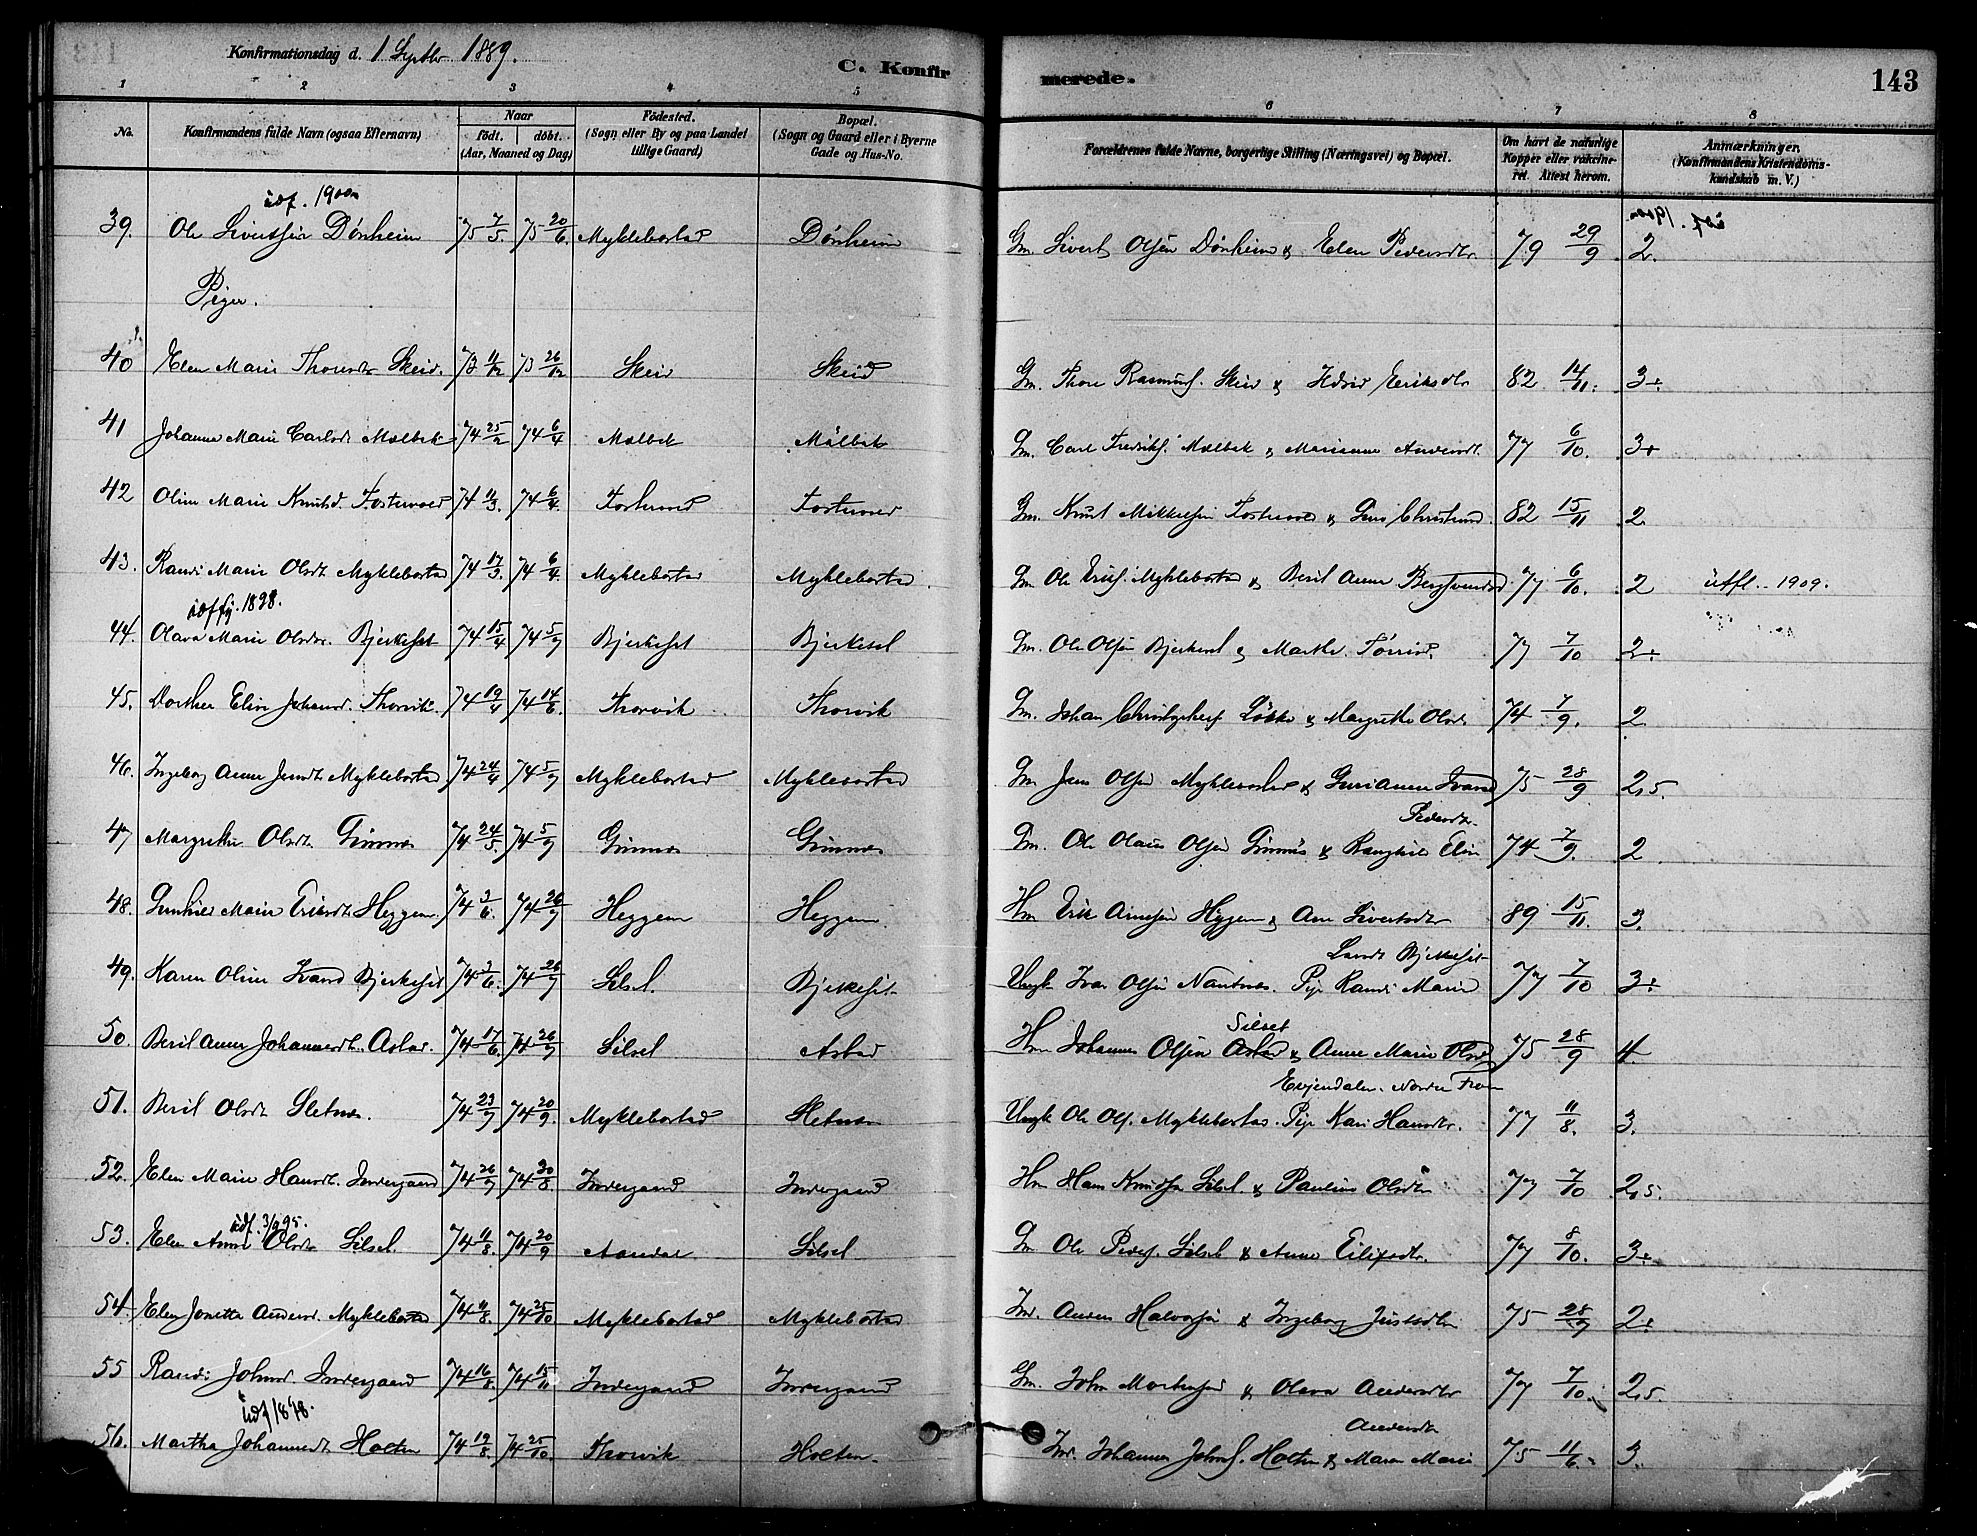 Konfirmationsdag d. 1 Septbr 1889.
C. Konfirmerede.
143
1 2 3 4 5 6 7 8
No.
Konfirmandens fulde Navn (ogsaa Efternavn)
Naar
födt. döbt.
(Aar, Maaned og Dag)
Födested.
(Sogn eller By og paa Landet tillige Gaard)
Bopæl.
(Sogn og Gaard eller i Byerne Gade og Hus-No.
Forældrenes fulde Navne, borgerlige Stilling (Næringsvei) og Bopæl.
Om havt de naturlige Kopper eller vakcineret. Attest herom.
Anmærkninger.
(Konfirmandens Kristendomskundskab m. V.)
udf. 1900
39. Ole Sivertsen Dönheim 75 7/5. 75 20/6. Myklebostad Dönheim Gm. Sivert Olsen Dönheim & Elen Pedersdtr 79 29/9 2. udf. 1900
Piger.
40 Elen Marie Thoresdtr Skeid. 73 11/12 73 26/12 Skeid Skeid Gm. Thore Rasmuss. Skeid & Eriksdtr 82 14/11. 3+.
41 Johanne Marie Carlsdt. Mælbek 74 25/2 74 6/4 Mælbek Mælbek Gm. Carl Fredriks. Mælbek & Marianne Andersdt. 77 6/10. 3+
42 Oline Marie Knutsd. Fostervold 74 11/3. 74 6/4 Fostervold Fostervold Gm. Knut Mikkelsen Fostervold & 82 15/11 2.
43. Randi Marie Olsdt. Myklebostad 74 17/3. 74 6/4. Myklebostad Myklebostad Gm Ole Eriks. Myklebostad & Beril Anna 77 6/10. 2 utfl. 1909.
1898.
44. Olava Marie Olsdtr. Bjerkeset 74 15/4 74 5/7 Bjerkeset Bjerkeset Gm. Ole Olsen Bjerkeset & Marthe 77 7/10 2+
45. Dorthea Elin Johansd. Thorvik. 74 19/4 74 14/6. Thorvik Thorvik Gm. Johan Løkke & Margrethe Olsd. 74 7/9. 2
46. Ingeborg Anne Jensdt. Myklebostad 74 24/4 74 5/7 Myklebostad Myklebostad Gm Jens Olsen Myklebostad & Guri Anna Ivarsd 75 28/9 2,5.
Pedersdt.
47 Margrethe Olsdt. Gimnes 74 24/5. 74 5/7 Gimnes Gimnes Gm. Ole Olaus Olsen Gimnes & Ranghild Elin 74 7/9. 2
48. Gunhild Marie Eriksdt. Heggem. 74 2/6. 74 26/7 Heggem Heggem. Hm Erik Arnesen Heggem & Ane Sivertsdtr 89 15/11. 3.
Larsdt Bjerkeset
49. Karen Oline Ivarsd Bjerkeset 74 2/6. 74 26/7 Silset. Bjerkeset Ungk. Ivar Olsen Nautnes. Pige Randi Marie 77 7/10 3+
Silset
50. Beril Anne Johannesdt. Astad. 74 17/6. 74 26/7 Silset Astad Hm Johannes Olsen Astad & Anne Marie Olsd. 75 28/9 4.
51. Beril Olsdt. Sletnes. 74 23/7 74 20/9. Myklebostad Sletnes Ungk Ole Ols. Myklebostad. Pige Kari Hansdtr. 77 11/8. 3.
52. Elen Marie Hansdt. Indergaard 74 26/7 74 30/8. Indergaard Indergaard Hm Hans Knutsen Silset. & Pauline Olsdtr 77 7/10 2,5.
udf. 3/9 95.
53. Elen Anne Olsdtr Silset. 74 11/8. 74 20/9 Silset Gm Ole Peders. Silset & Anne Eilifsdtr. 77 8/10. 3+
54. Elen Jonetta Andersd. Myklebostad 74 11/8. 74 25/10 Myklebostad Myklebostad Ind. Anders Halvorsen & Ingeborg Justsdtr 75 28/9 2+
55 Randi Johnsd. Indergaard 74 16/8. 74 15/11 Indergaard Indergaard Gm. John Mortensen & Olava Andersdtr 77 7/10. 2,5
udf 1898.
Andersdt
56. Martha Johannesdt Holten 74 19/8. 74 25/10. Thorvik Holten. Ind. Johannes Johns. Holten & Maren Marie 75 11/6. 3.